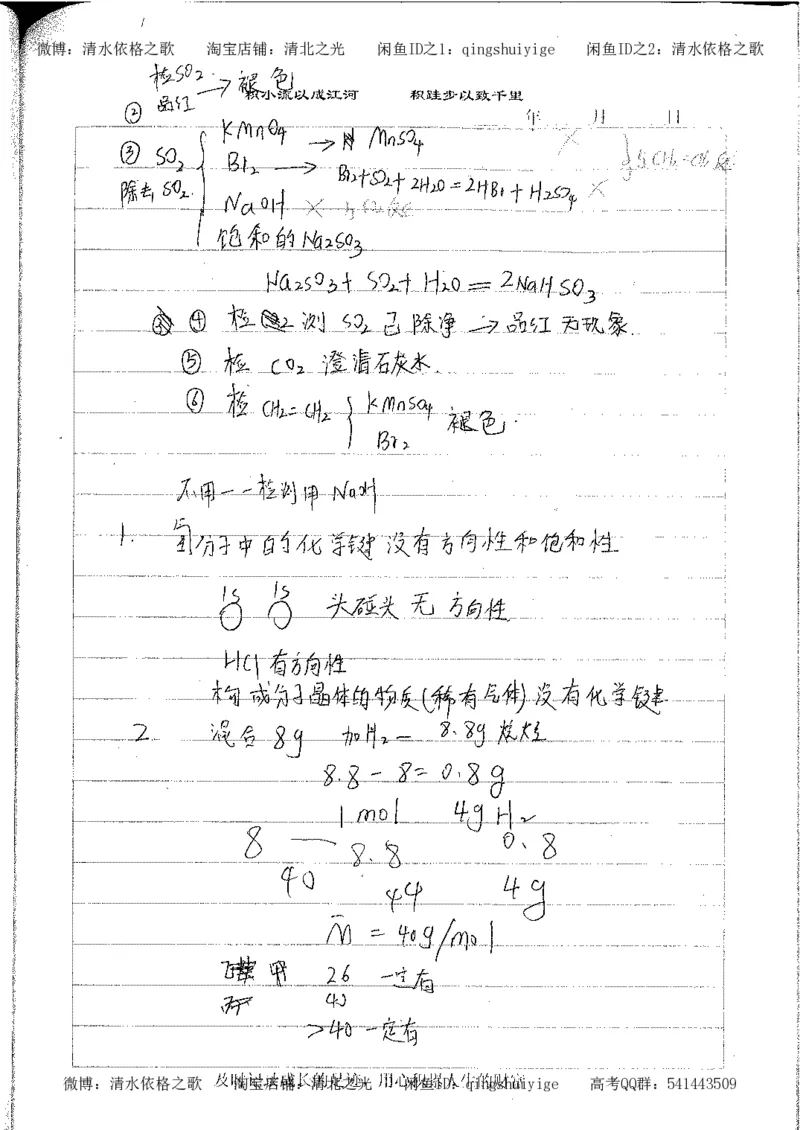 微博：清水依格之歌 淘宝店铺：清北之光 闲鱼ID之1：qingshuiyige 闲鱼ID之2：清水依格之歌
检SO₂
积小流以成江河 积跬步以致千里
② 品红 → 褪色
年 月 日
③ SO₂ KMnO₄ → MnSO₄
除去SO₂ Br₂ → Br₂+SO₂+2H₂O=2HBr+H₂SO₄ ×
NaOH ×
饱和的Na₂SO₃
Na₂SO₃+SO₂+H₂O=2NaHSO₃
④ 检测SO₂已除净→品红无现象.
⑤ 检 CO₂ 澄清石灰水.
⑥ 检 CH₂=CH₂ KMnSO₄ 褪色.
Br₂
不用一一检测用NaOH
1. 氢分子中的化学键没有方向性和饱和性
1s 1s 头碰头 无 方向性
HCl 有方向性
构成分子晶体的物质(稀有气体)没有化学键
2 混合 8g 加H₂— 8.8g 烷烃
8.8-8=0.8g
1mol 4gH₂
8 — 8.8 0.8
40 44 4g
M̄ = 40g/mol
甲 26 一定有
丙 40
>40 一定有
微博：清水依格之歌 淘宝店铺：清北之光 闲鱼ID：qingshuiyige 高考QQ群：541443509